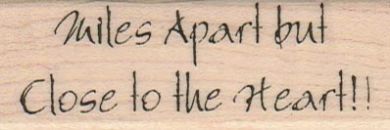 Miles Apart but
Close to the Heart!!